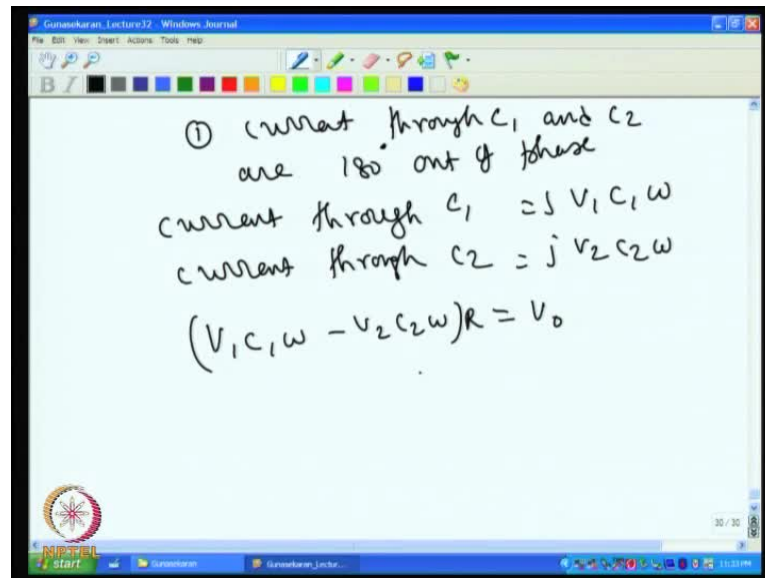 Gunasekaran_Lecture32 - Windows Journal
File Edit View Insert Actions Tools Help
B I
① current through C1 and C2
are 180° out of phase
current through C1 = j V1 C1 ω
current through C2 = j V2 C2 ω
(V1 C1 ω - V2 C2 ω)R = V0
30 / 30
NPTEL
start Gunasekaran Gunasekaran_Lectur... 11:33 PM